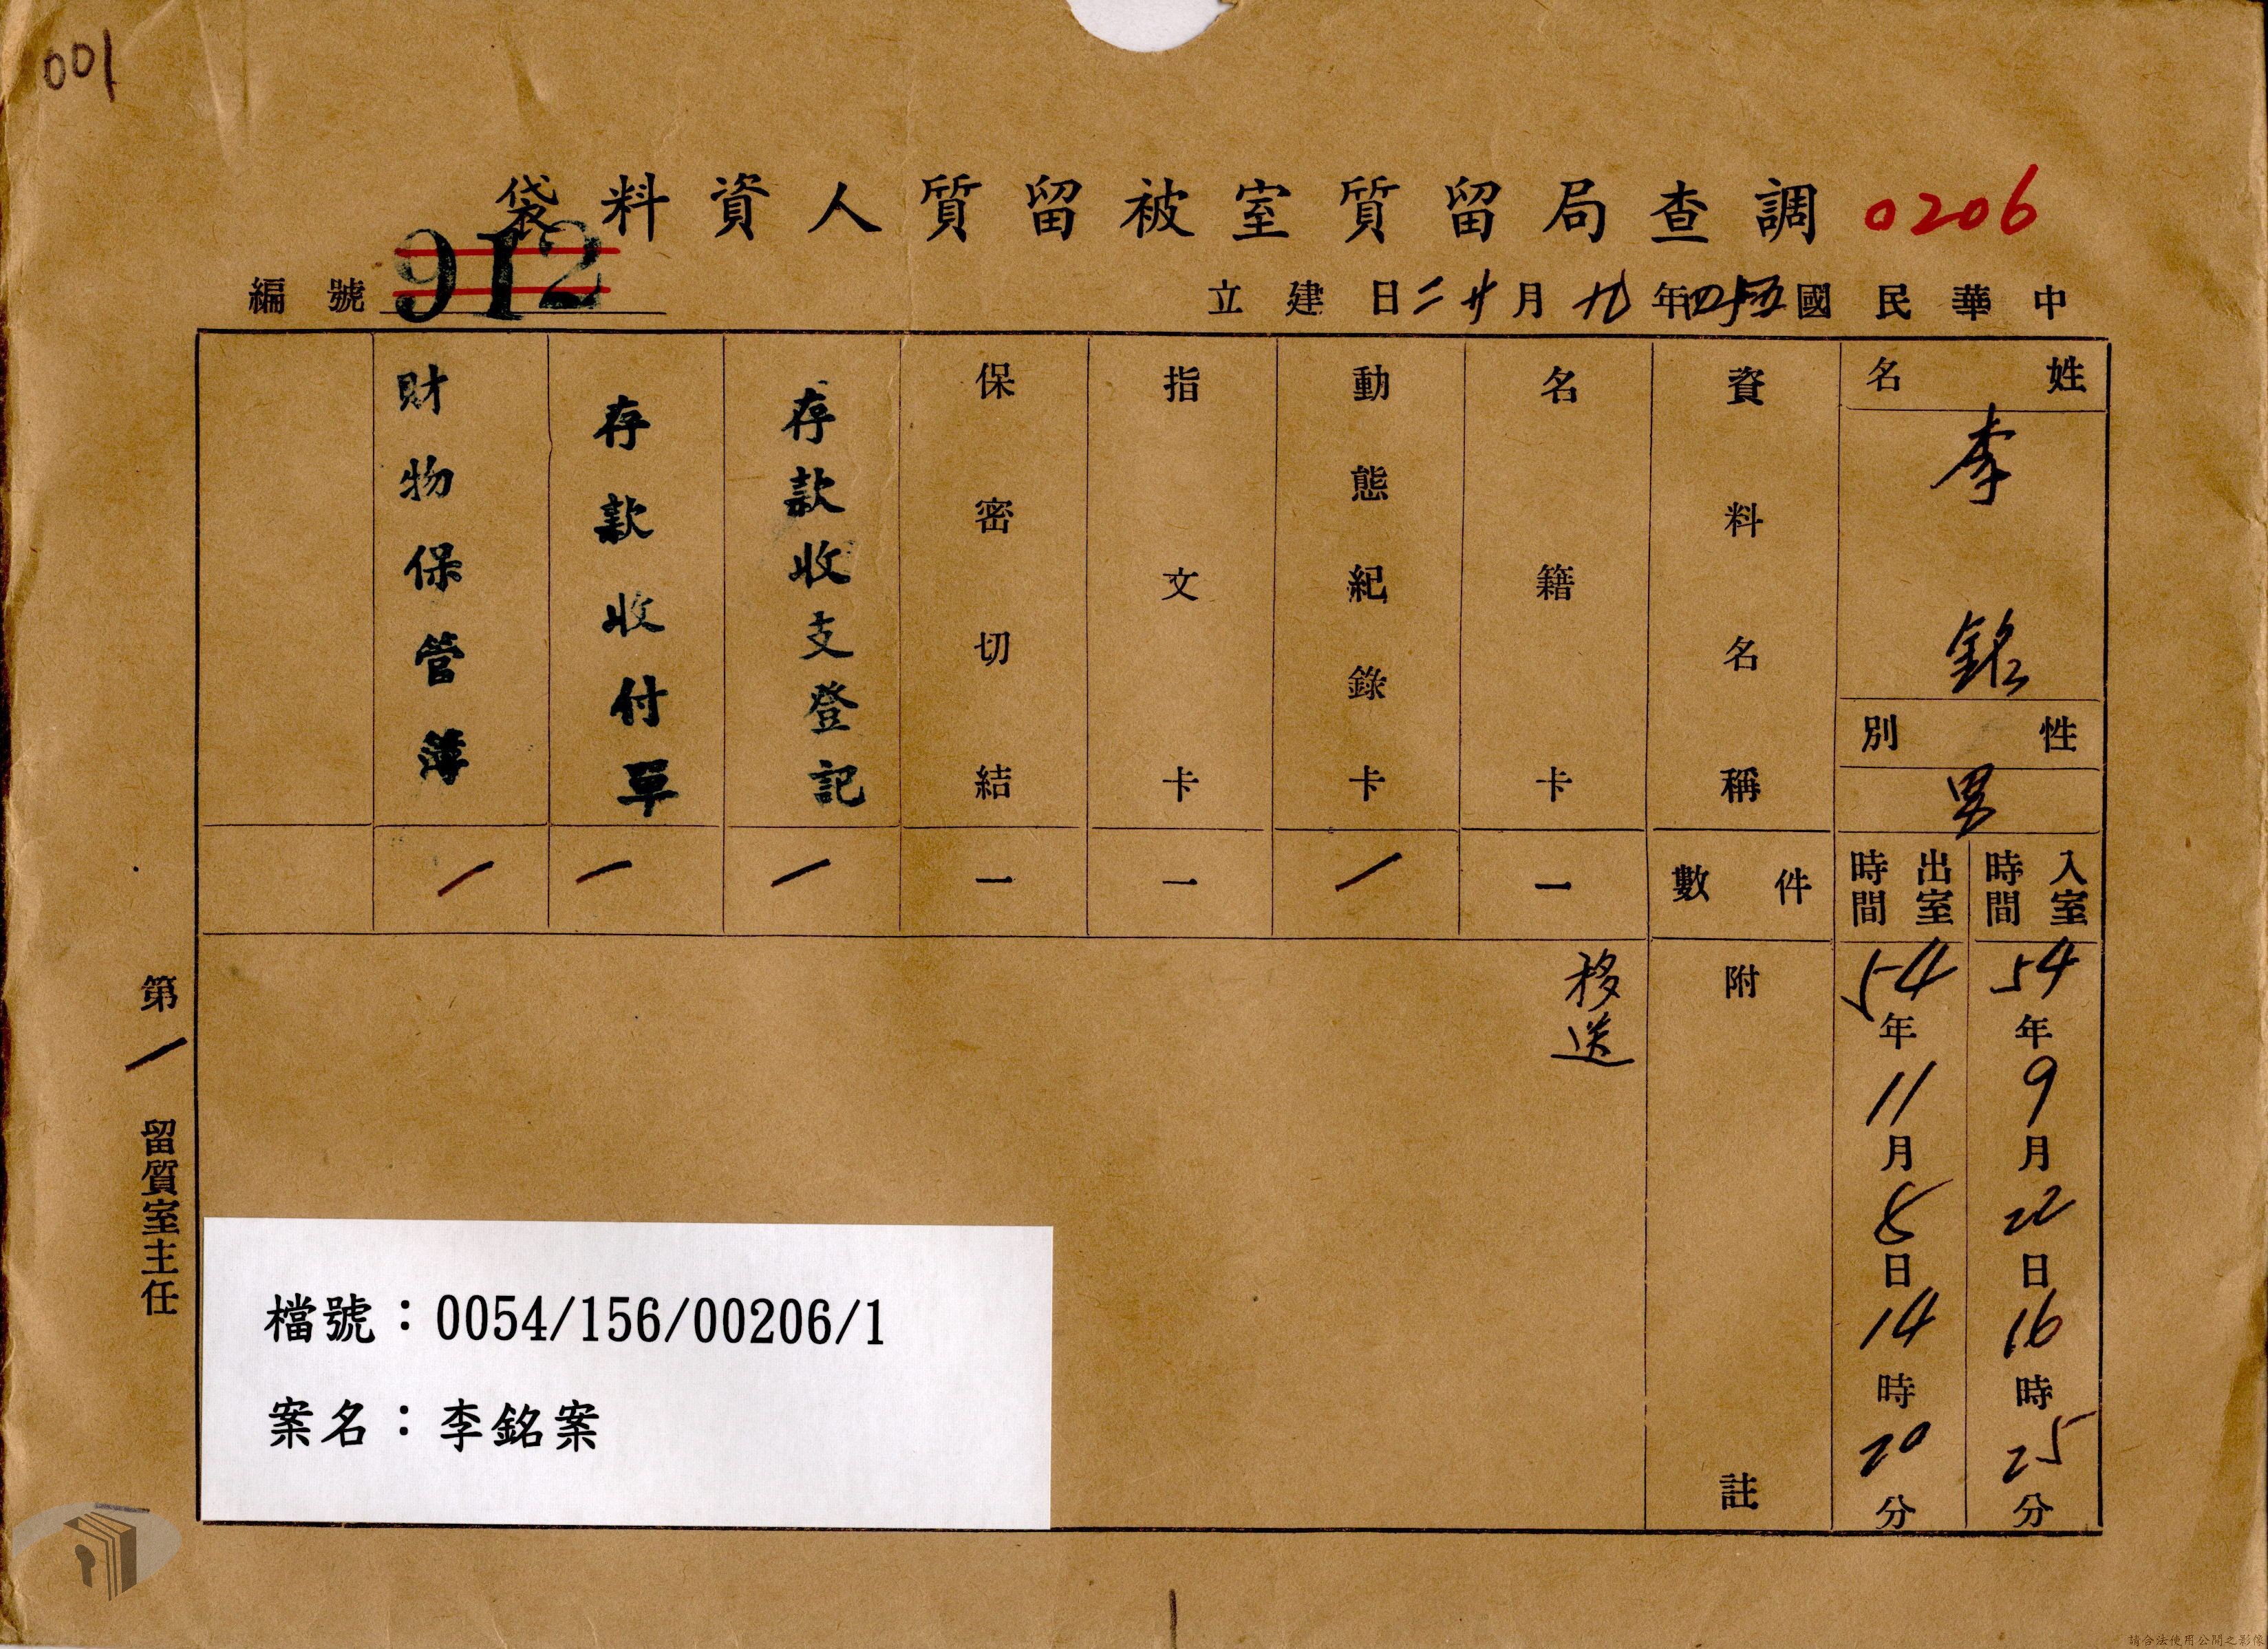 001
調查局留質室被留質人資料袋
0206
編號 912
中華民國五十四年九月廿二日建立
姓名
李銘
性別
男
入室時間
54年9月22日16時25分
出室時間
54年11月8日14時20分
資料名稱
件數
附註
名籍卡
一
動態紀錄卡
一
指文卡
一
保密切結
一
存款收支登記
一
存款收付單
一
財物保管簿
一
移送
第一留質室主任
檔號：0054/156/00206/1
案名：李銘案
請合法使用公開之影像